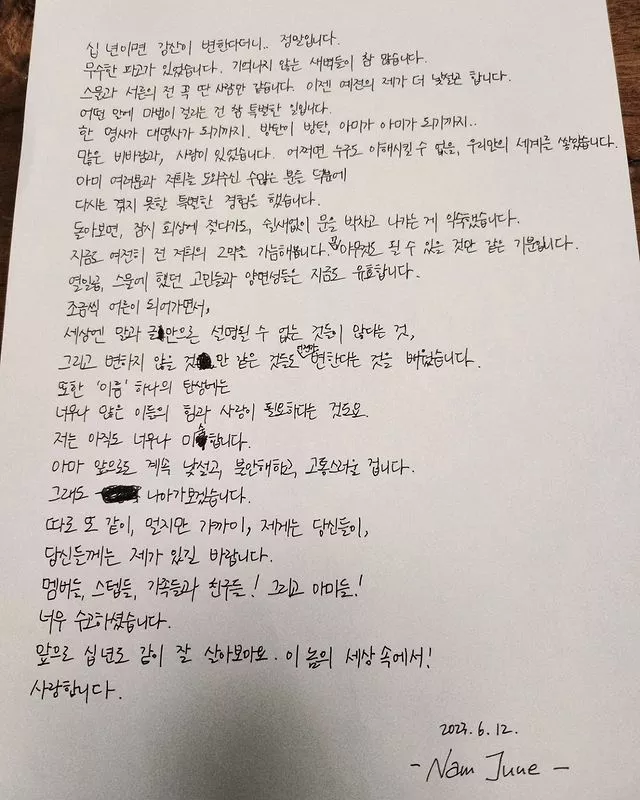 십 년이면 강산이 변한다더니.. 정말입니다.
무수한 파고가 있었습니다. 기억나지 않는 새벽들이 참 많습니다.
스물과 서른의 전 꼭 딴 사람만 같습니다. 이젠 예전의 제가 더 낯설곤 합니다.
어떤 말에 마법이 걸리는 건 참 특별한 일입니다.
한 명사가 대명사가 되기까지. 방탄이 방탄, 아미가 아미가 되기까지..
많은 비바람과, 사랑이 있었습니다. 어쩌면 누구도 이해시킬 수 없을, 우리만의 세계를 쌓았습니다.
아미 여러분과 저희를 도와주신 수많은 분들 덕분에
다시는 겪지 못할 특별한 경험을 했습니다.
돌아보면, 잠시 회상에 젖다가도, 쉴새없이 문을 박차고 나가는 게 익숙했습니다.
지금도 여전히 전 저희의 2막을 가늠해봅니다. 꼭 아무것도 될 수 있을 것만 같은 기분입니다.
열일곱, 스물에 했던 고민들과 양면성들은 지금도 유효합니다.
조금씩 어른이 되어가면서,
세상엔 말과 글만으로 설명될 수 없는 것들이 많다는 것,
그리고 변하지 않을 것만 같은 것들도 언젠간 변한다는 것을 배웠습니다.
또한 '이름' 하나의 탄생에는
너무나 많은 이들의 힘과 사랑이 필요하다는 것도요.
저는 아직도 너무나 미숙합니다.
아마 앞으로도 계속 낯설고, 불안해하고, 고통스러울 겁니다.
그래도 나아가보겠습니다.
따로 또 같이, 멀지만 가까이, 제게는 당신들이,
당신들께는 제가 있길 바랍니다.
멤버들, 스텝들, 가족들과 친구들! 그리고 아미들!
너무 수고하셨습니다.
앞으로 십 년도 같이 잘 살아보아요. 이 놈의 세상 속에서!
사랑합니다.
2023. 6. 12.
- Nam June -